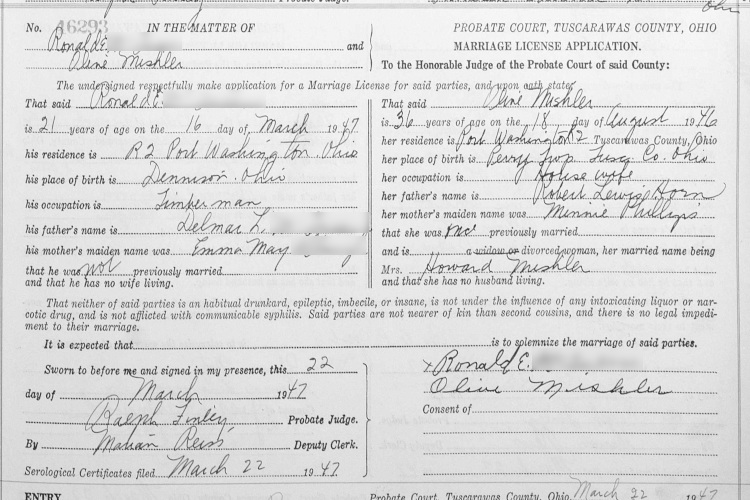 Probate Judge.
Ohio
No. 46293 IN THE MATTER OF
Ronald E.
and
Olive Mishler
PROBATE COURT, TUSCARAWAS COUNTY, OHIO
MARRIAGE LICENSE APPLICATION.
To the Honorable Judge of the Probate Court of said County:
The undersigned respectfully make application for a Marriage License for said parties, and upon oath state:
That said Ronald E.
is 21 years of age on the 16 day of March 1947
his residence is R 2 Port Washington, Ohio
his place of birth is Dennison, Ohio
his occupation is Timber man
his father's name is Delmar L.
his mother's maiden name was Emma May
that he was not previously married
and that he has no wife living.
That said Olive Mishler
is 36 years of age on the 18 day of August 1946
her residence is Port Washington R 2 Tuscarawas County, Ohio
her place of birth is Perry Twp Tusc. Co. Ohio
her occupation is House wife
her father's name is Robert Lewis Horn
her mother's maiden name was Minnie Phillips
that she was once previously married
and is a widow or divorced woman, her married name being
Mrs. Howard Mishler
and that she has no husband living.
That neither of said parties is an habitual drunkard, epileptic, imbecile, or insane, is not under the influence of any intoxicating liquor or nar-
cotic drug, and is not afflicted with communicable syphilis. Said parties are not nearer of kin than second cousins, and there is no legal impedi-
ment to their marriage.
It is expected that is to solemnize the marriage of said parties.
Sworn to before me and signed in my presence, this 22
day of March 1947
Ralph Finley Probate Judge.
By Marian Reiss Deputy Clerk.
Serological Certificates filed March 22 1947.
x Ronald E.
Olive Mishler
Consent of
ENTRY Probate Court, Tuscarawas County, Ohio, March 22 1947